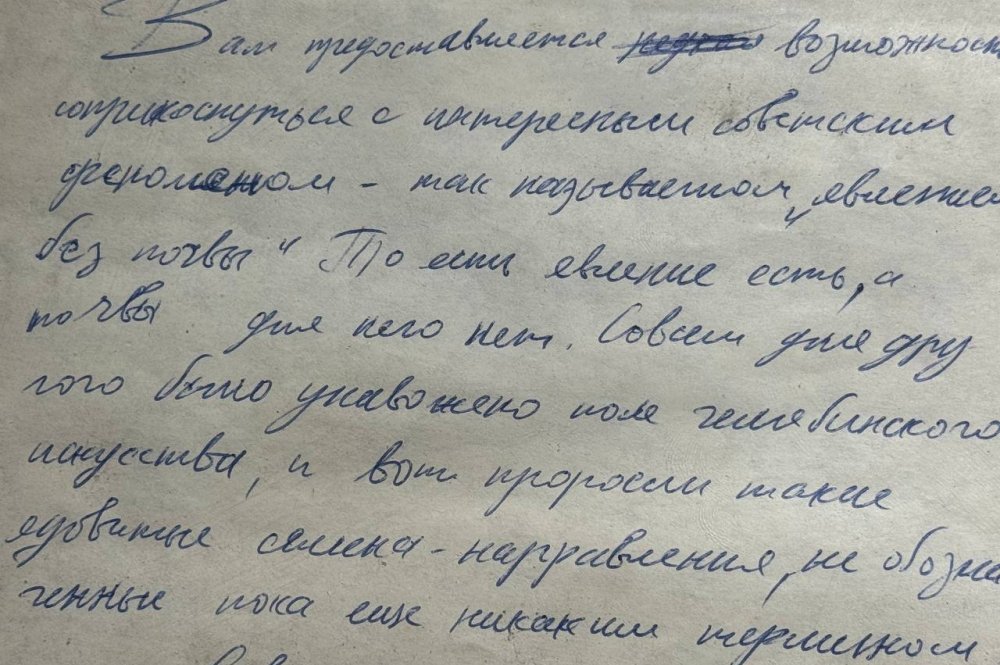 Вам предоставляется возможност
соприкоснуться с интересным советским
феноменом - так называемом „явление
без почвы" То есть явление есть, а
почвы для него нет. Совсем для дру
гого было унавожено поле челябинского
искусства, и вот проросли такие
ядовитые семена - направления, не обозна
ченные пока еще никаким термином